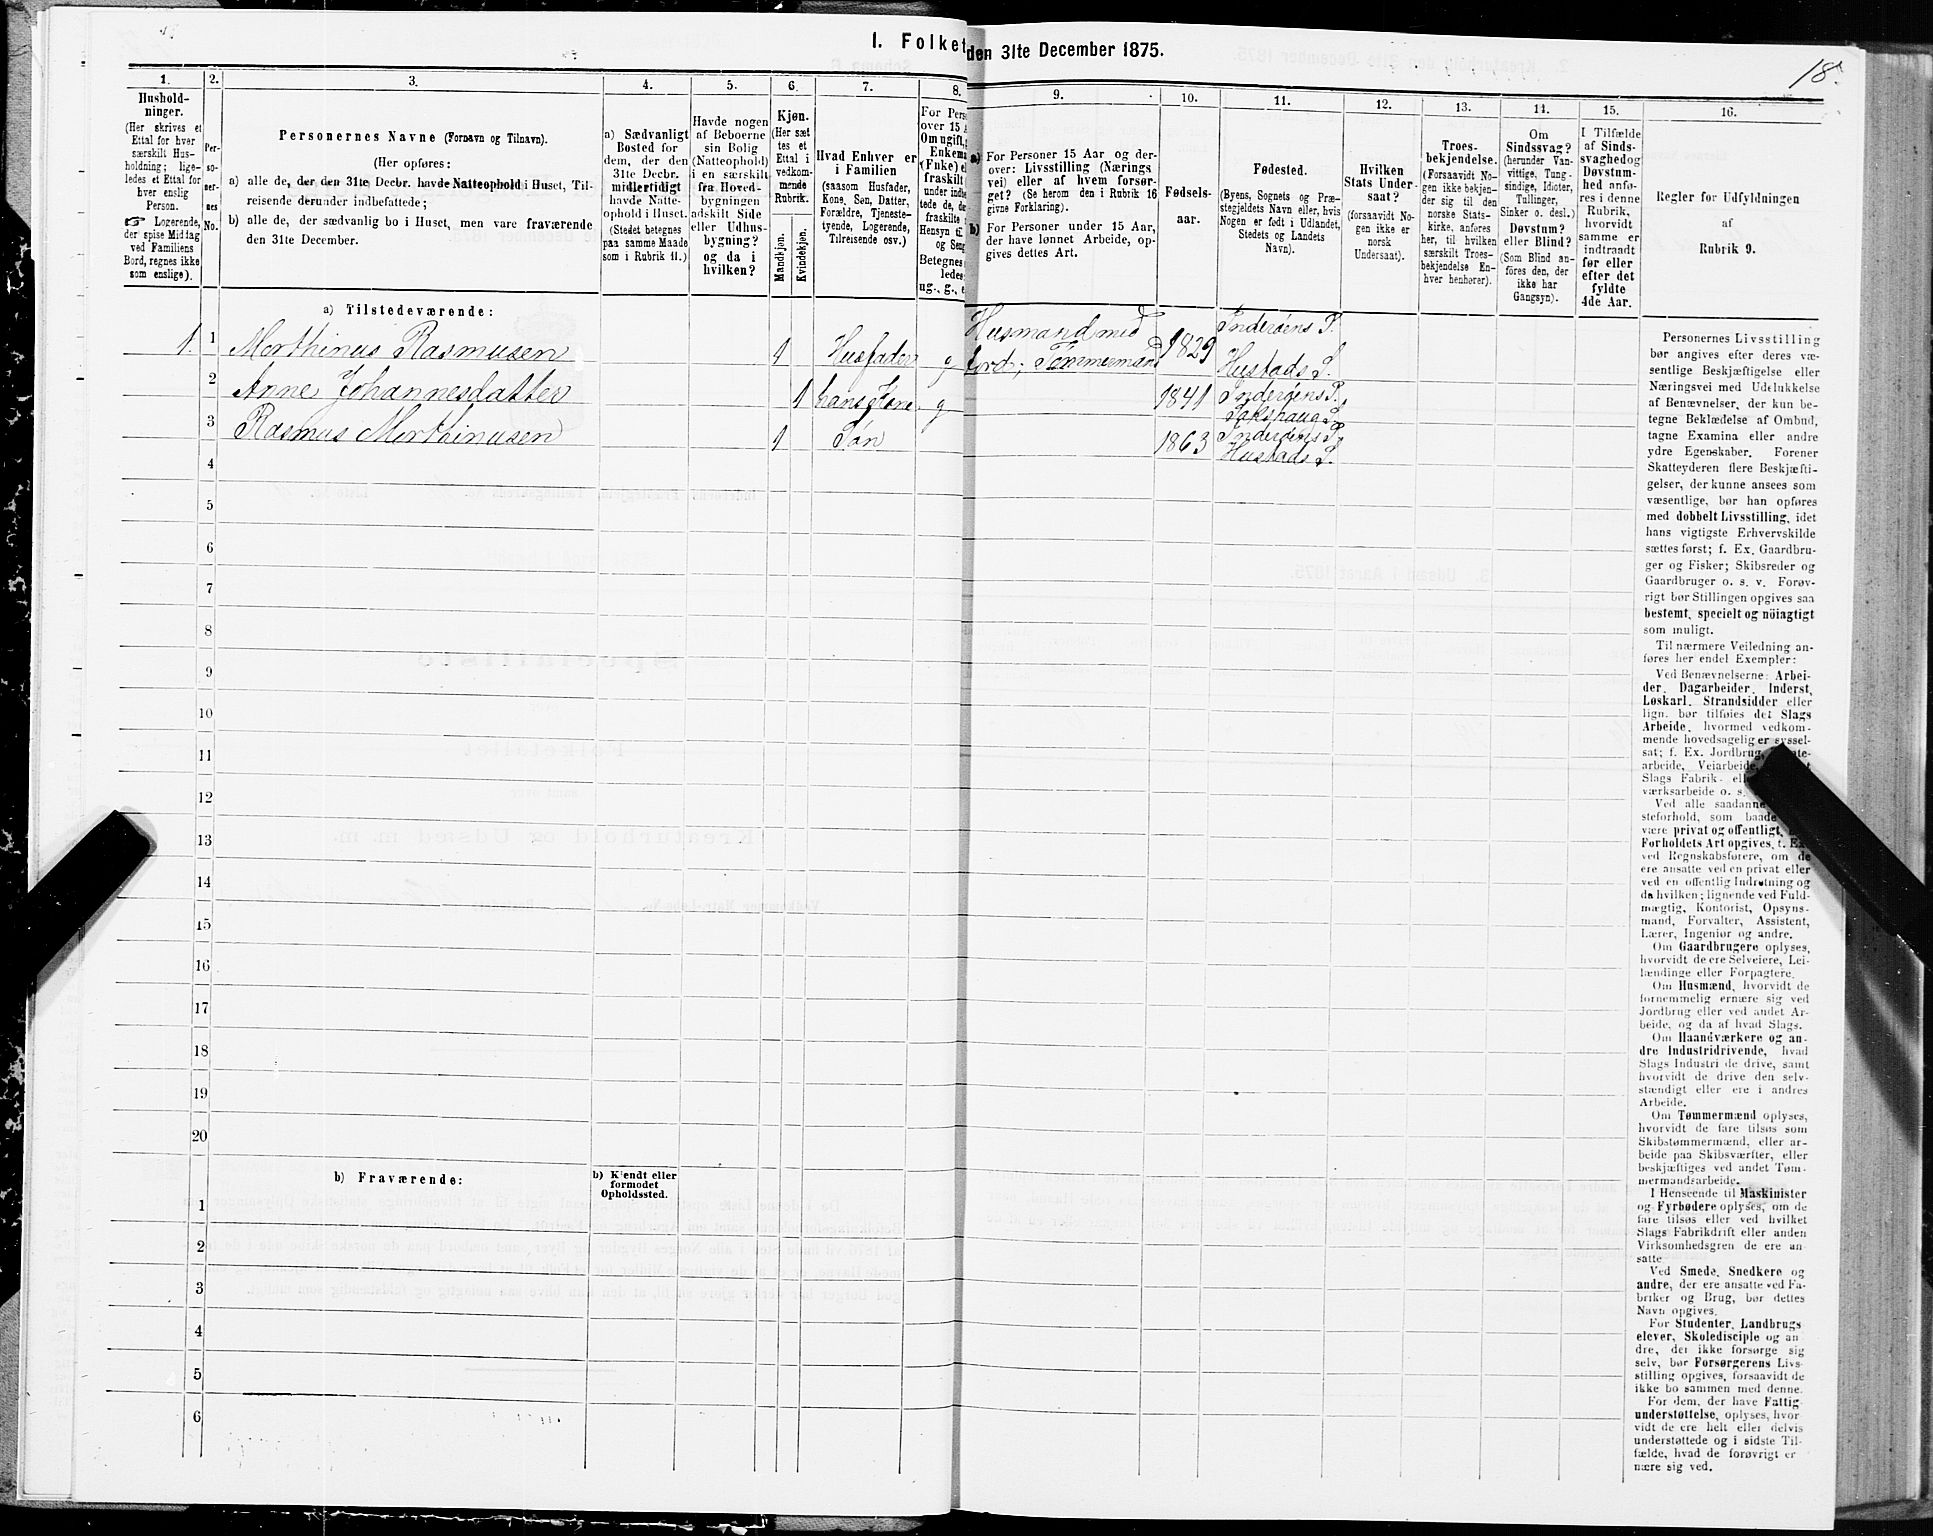 1. Folket
den 31te December 1875.
18.
1.
Hushold-
ninger.
(Her skrives et
Ettal for hver
særskilt Hus-
holdning; lige-
ledes et Ettal for
hver enslig
Person.
Logerende,
der spise Middag
ved Familiens
Bord, regnes ikke
som enslige).
2.
Per-
so-
ner-
nes
No.
3.
Personernes Navne (Fornavn og Tilnavn).
(Her opføres:
a) alle de, der den 31te Decbr. havde Natteophold i Huset, Til-
reisende derunder indbefattede;
b) alle de, der sædvanlig bo i Huset, men vare fraværende
den 31te December.
4.
a) Sædvanligt
Bosted for
dem, der den
31te Decbr.
midlertidigt
havde Natte-
ophold i Huset.
(Stedet betegnes
paa samme Maade
som i Rubrik 11.)
5.
Havde nogen
af Beboerne
sin Bolig
(Natteophold)
i en særskilt
fra Hoved-
bygningen
adskilt Side
eller Udhus-
bygning?
og da i
hvilken?
6.
Kjøn.
(Her sæt
tes et
Ettal i
vedkom-
mende
Rubrik.
Mandkjøn.
Kvindekjøn.
7.
Hvad Enhver er
i Familien
(saasom Husfader,
Kone, Søn, Datter,
Forældre, Tjeneste-
tyende, Logerende,
Tilreisende osv.)
8.
For Pers
over 15 A
Om ugift,
Enkema
(Enke) e
fraskilt
under indbe
tede de,
fraskilte
Hensyn til
og Seng
Betegnes
ledes:
ug., g., e
9.
a) For Personer 15 Aar og der-
over: Livsstilling (Nærings
vei) eller af hvem forsør-
get? (Se herom den i Rubrik 16
givne Forklaring).
b) For Personer under 15 Aar,
der have lønnet Arbeide, op-
gives dettes Art.
10.
Fødsels-
aar.
11.
Fødested.
(Byens, Sognets og Præ-
stegjeldets Navn eller, hvis
Nogen er født i Udlandet,
Stedets og Landets
Navn).
12.
Hvilken
Stats Under-
saat?
(forsaavidt No-
gen ikke er
norsk
Undersaat).
13.
Troes-
bekjendelse.
(Forsaavidt No-
gen ikke bekjen-
der sig til den
norske Stats-
kirke, anføres
her, til hvilken
særskilt Troes-
bekjendelse En-
hver henhører).
14.
Om
Sindssvag?
(herunder Van-
vittige, Tung-
sindige, Idioter,
Tullinger,
Sinker o. desl.)
Døvstum?
eller Blind?
(Som Blind an-
føres den, der
ikke har
Gangsyn).
15.
I Tilfælde
af Sinds-
svaghed og
Døvstum-
hed anfø-
res i denne
Rubrik,
hvorvidt
samme er
indtraadt
før eller
efter det
fyldte
4de Aar.
16.
Regler for Udfyldningen
af
Rubrik 9.
a) Tilstedeværende:
1. 1 Morthinus Rasmusen 1 Husfader g Husmand med Jord; Tømmermand 1829 Inderøens P. Hustads S.
2 Anne Johannesdatter 1 hans Kone g 1841 Inderøens P. Sakshaug S.
3 Rasmus Morthinusen 1 Søn 1863 Inderøens P. Hustads S.
4
5
6
7
8
9
10
11
12
13
14
15
16
17
18
19
20
b) Fraværende:
b) Kjendt eller
formodet
Opholdssted.
1
2
3
4
5
6
Personernes Livsstilling
bør angives efter deres væ-
sentlige Beskjæftigelse eller
Næringsvei med Udelukkelse
af Benævnelser, der kun be-
tegne Beklædelse af Ombud,
tagne Examina eller andre
ydre Egenskaber. Forener
Skatteyderen flere Beskjæfti-
gelser, der kunne ansees som
væsentlige, bør han opføres
med dobbelt Livsstilling, idet
hans vigtigste Erhvervskilde
sættes først; f. Ex. Gaardbru-
ger og Fisker; Skibsreder og
Gaardbruger o. s. v. Forøv-
rigt bør Stillingen opgives saa
bestemt, specielt og nøiagtigt
som muligt.
Til nærmere Veiledning an-
føres her endel Exempler:
Ved Benævnelserne: Arbei-
der, Dagarbeider, Inderst,
Løskarl, Strandsidder eller
lign. bør tilføies det Slags
Arbeide, hvormed vedkom-
mende hovedsagelig er syssel-
sat; f. Ex. Jordbrug,
arbeide, Veiarbeide,
Slags Fabrik- el
værksarbeide o. s.
Ved alle saadanne
steforhold, som baade
være privat og offentligt,
Forholdets Art opgives, f. Ex.
ved Regnskabsførere, om de
ere ansatte ved en privat eller
ved en offentlig Indretning og
da hvilken; lignende ved Fuld-
mægtig, Kontorist, Opsyns-
mand, Forvalter, Assistent,
Lærer, Ingeniør og andre.
Om Gaardbrugere oplyses,
hvorvidt de ere Selveiere, Lei-
lændinge eller Forpagtere.
Om Husmænd, hvorvidt de
fornemmelig ernære sig ved
Jordbrug eller ved andet Ar-
beide, og da af hvad Slags.
Om Haandværkere og an-
dre Industridrivende, hvad
Slags Industri de drive, samt
hvorvidt de drive den selv-
stændigt eller ere i andres
Arbeide.
Om Tømmermænd oplyses,
hvorvidt de fare tilsøs som
Skibstømmermænd, eller ar-
beide paa Skibsværfter, eller
beskjæftiges ved andet Tøm-
mermandsarbeide.
I Henseende til Maskinister
og Fyrbødere oplyses, om de
fare tilsøs eller ved hvilket
Slags Fabrikdrift eller anden
Virksomhedsgren de ere an-
satte.
Ved Smede, Snedkere og
andre, der ere ansatte ved Fa-
briker og Brug, bør dettes
Navn opgives.
For Studenter, Landbrugs
elever, Skoledisciple og an
dre, der ikke forsørge sig
selv, bør Forsørgerens Livs-
stilling opgives, forsaavidt de
ikke bo sammen med denne.
For dem, der have Fattig-
understøttelse, oplyses, hvor-
vidt de ere helt eller delvis
understøttede og i sidste Til-
fælde, hvad de forøvrigt er
nære sig ved.